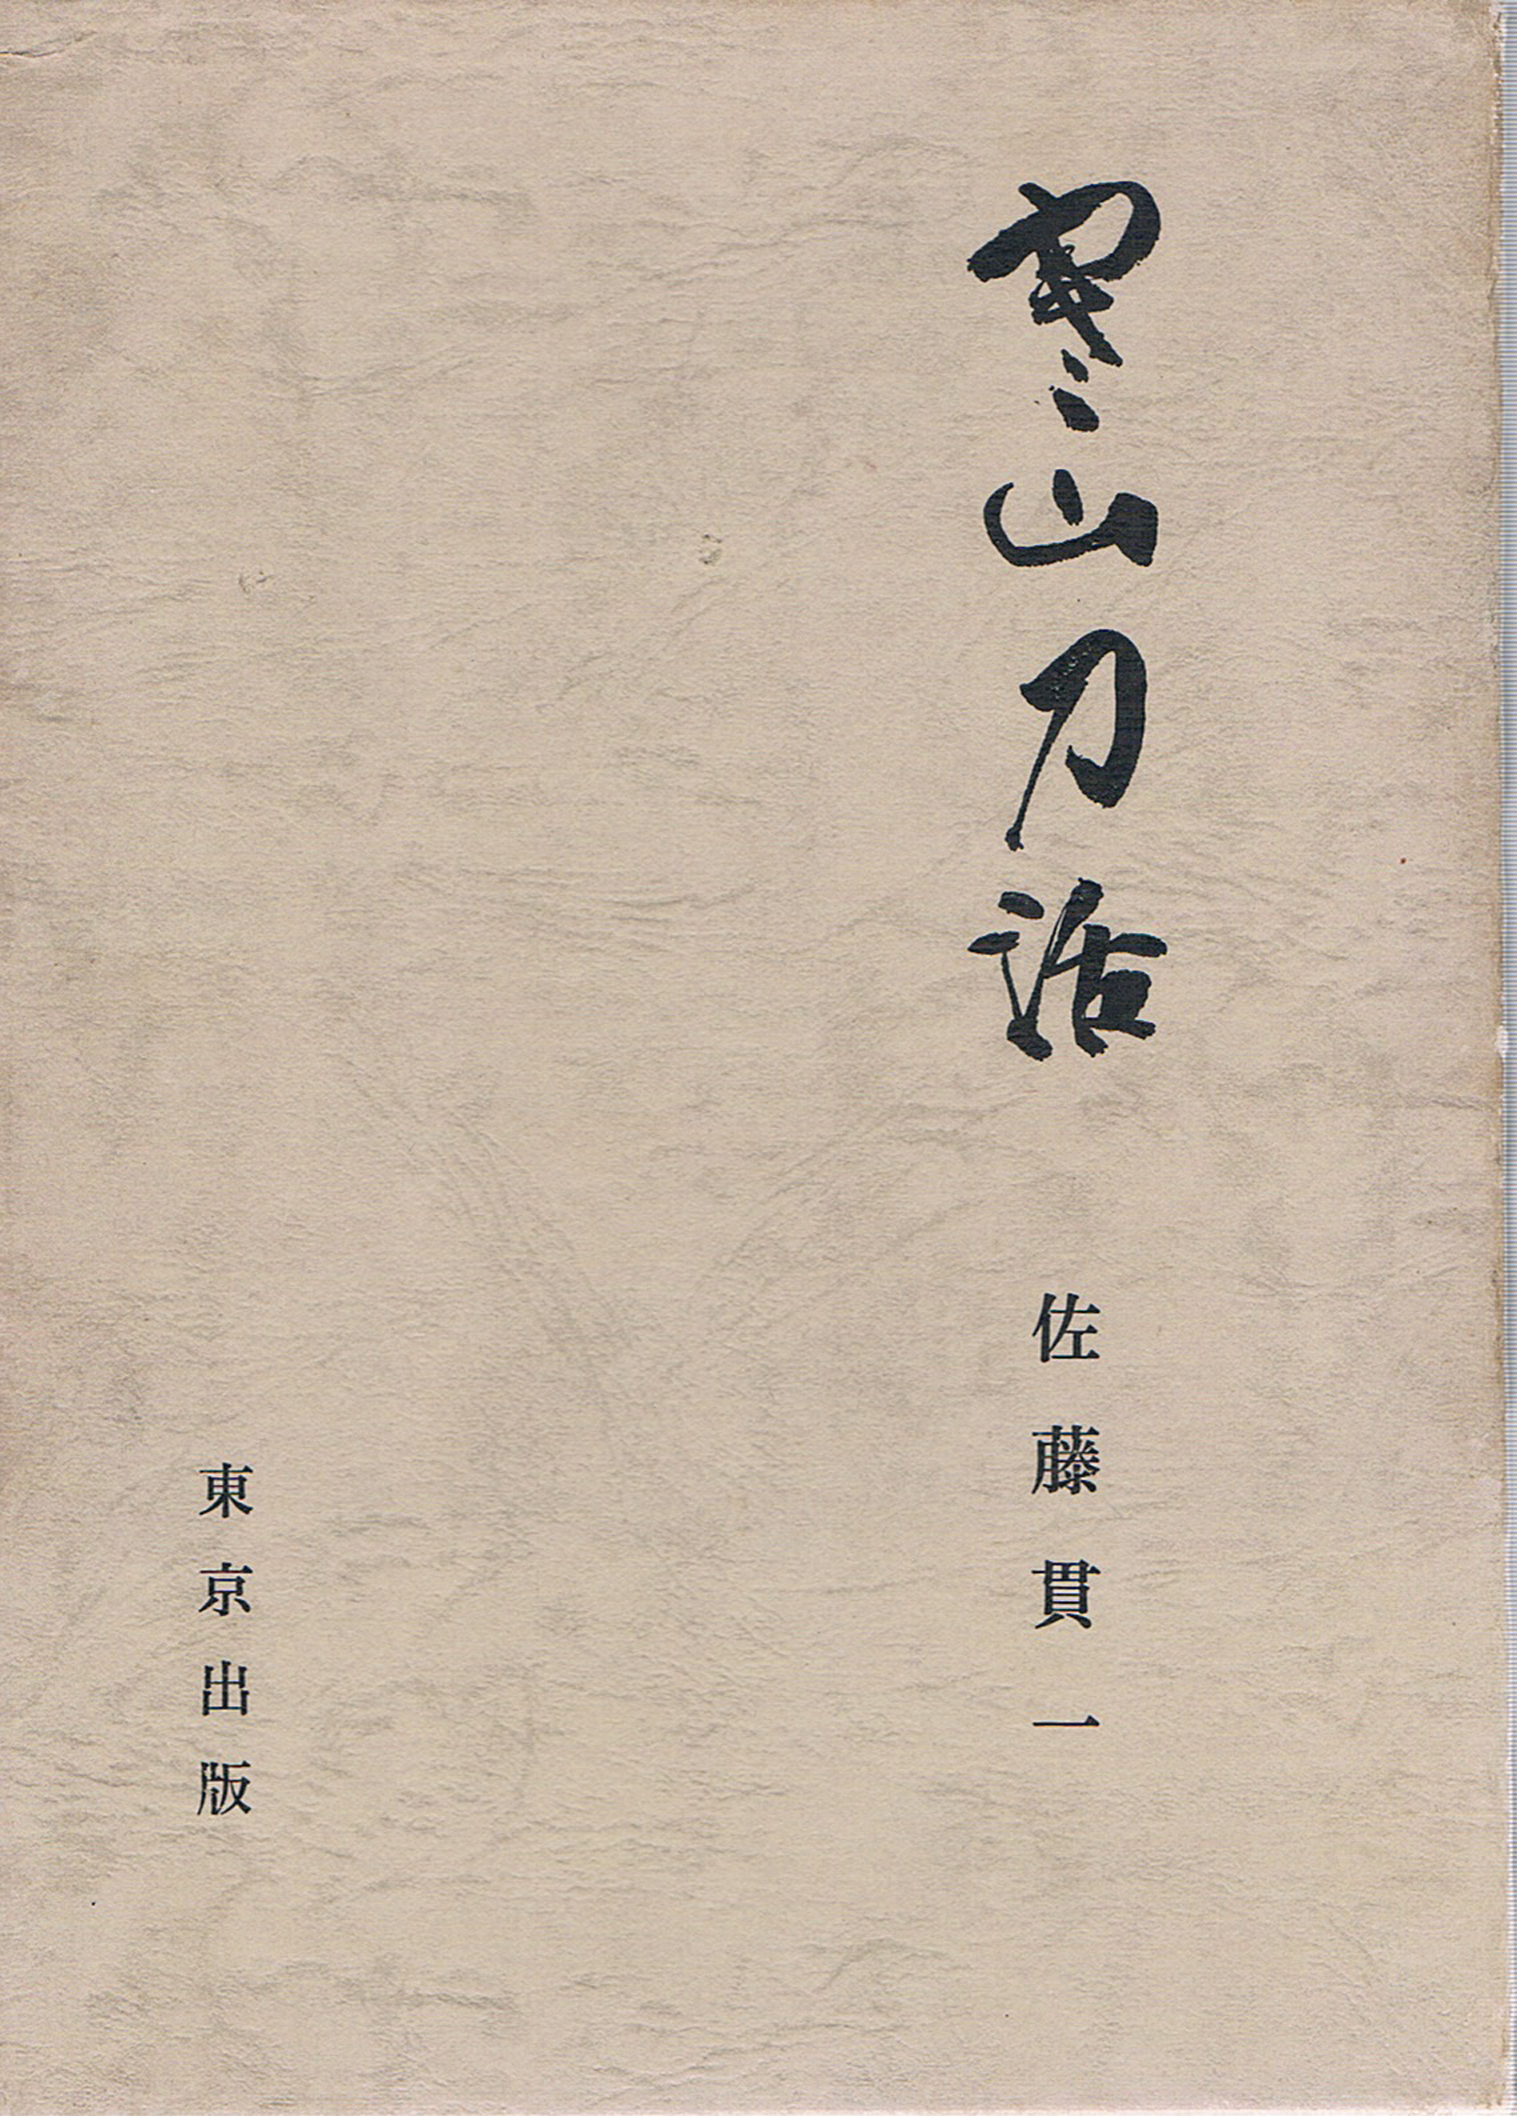 寒山刀話
佐藤貫一
東京出版